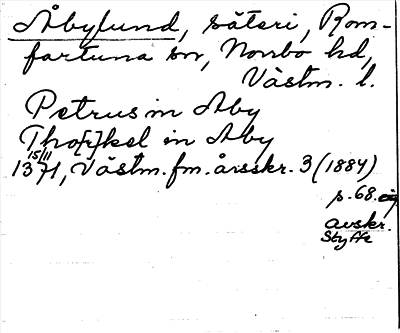 Åbylund, säteri, Rom-
fartuna sn, Norrbo hd,
Västm. l.
Petrus in Aby
Tho[r]kel in Aby
15/11
1371, Västm.fm.årsskr. 3 (1884)
p. 68.
avskr.
Styffe